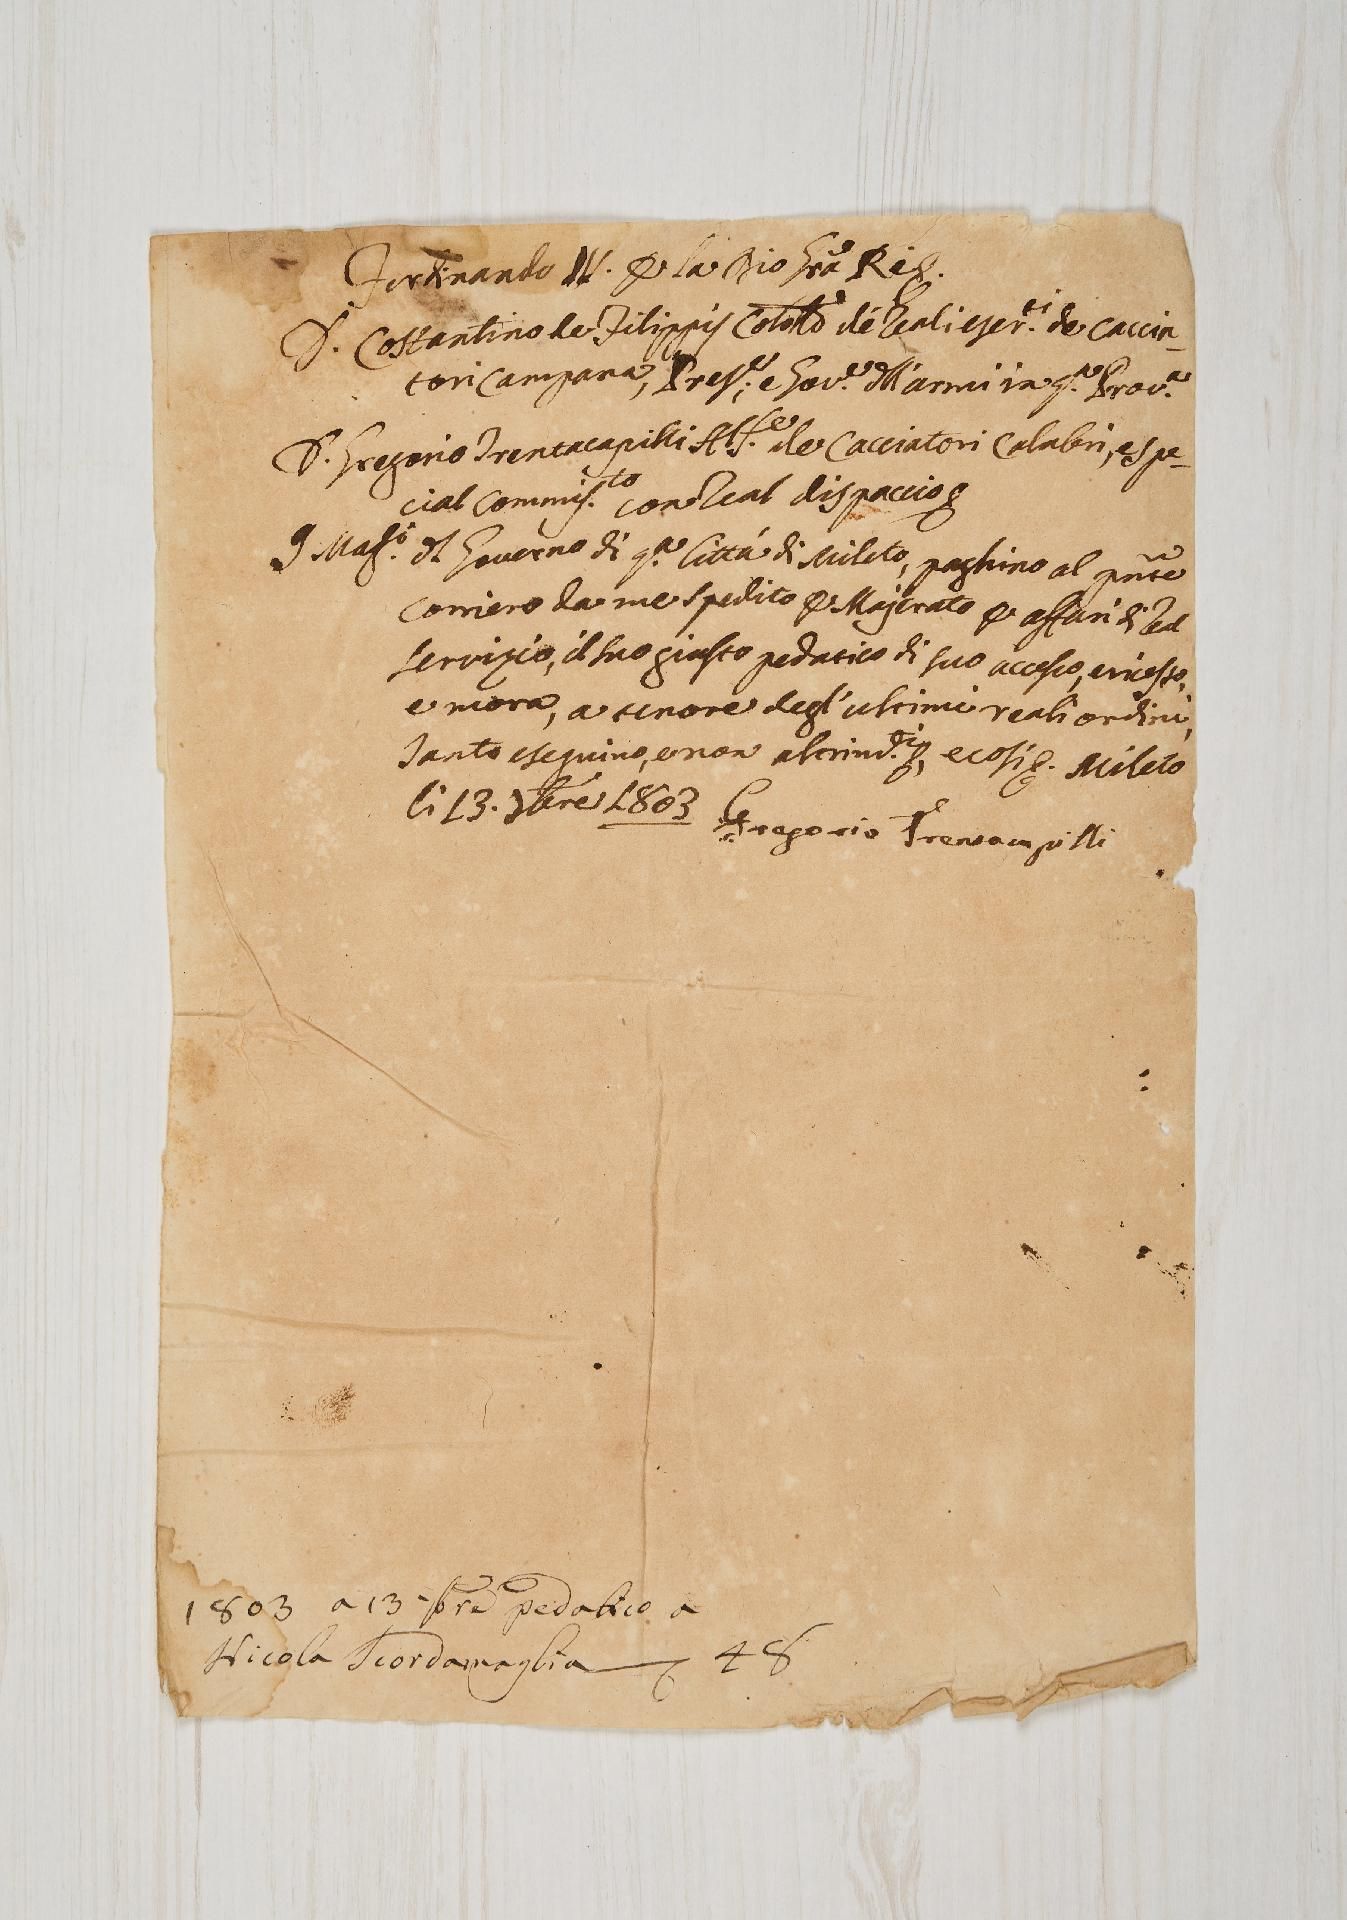 Ferdinando IV. per la Dio Gra Re &.
D. Costantino de Filippis Colo de Reali eser.ti de Caccia-
tori Campana, Pres.e, e Gov.e dll'armi in q.a Prov.a
D. Gregorio Trentacapilli Alf.e de Cacciatori Calabri, e spe-
cial Commis.to con Real dispaccio &
I Mag.i dl Governo di q.a Città di Mileto, paghino al pnte
corriero da me spedito per Majerato per affari di Real
servizio, il suo giusto pedatico di suo accesso, e recesso,
e mora, a tenore degl'ultimi reali ordini,
Tanto eseguino, e non altrim.ti &, e così &. Mileto
li 13. 7bre 1803 Gregorio Trentacapilli
1803 a 13 7bre pedatico a
Nicola Scordamaglia 48